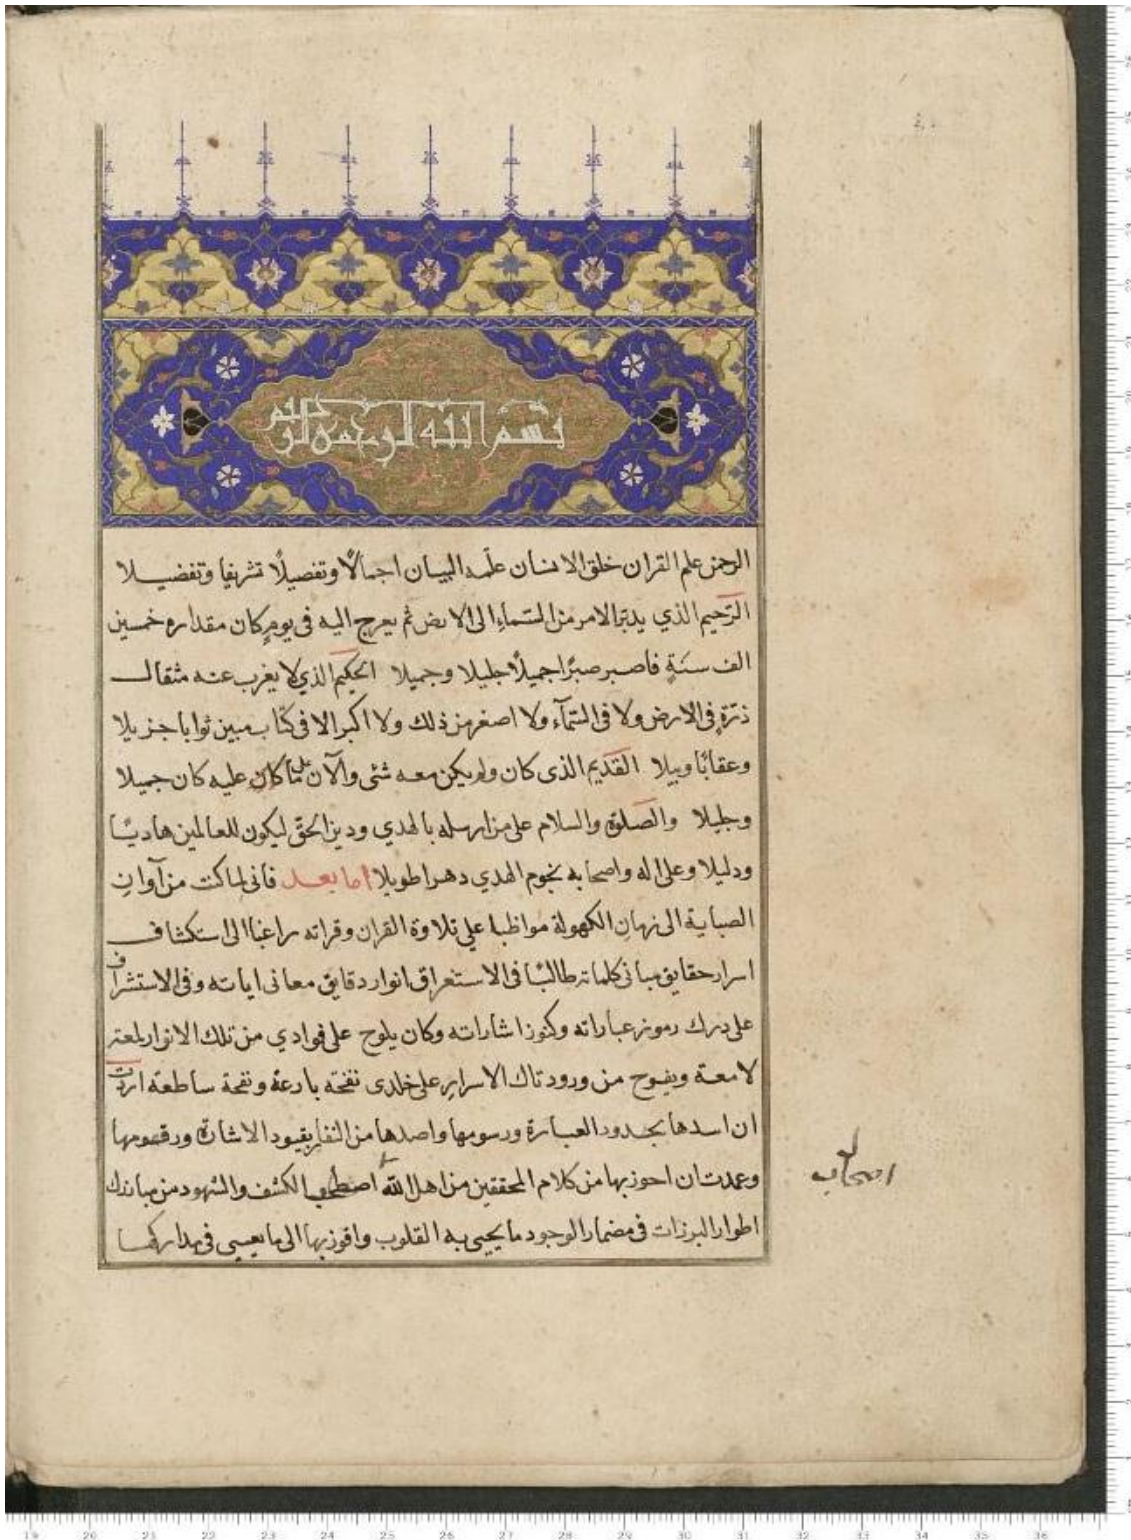 بسم الله الرحمن الرحيم
الرحمن علم القران خلق الانسان علّمه البيان اجمالًا وتفصيلًا تشريفا وتفضيلا
الرّحيم الذي يدبّر الامر من السّماءِ الى الارض ثم يعرج اليه فى يومٍ كان مقداره خمسين
الف سنَةٍ فاصبر صبرًا جميلًا جليلا وجميلا الحكيم الذي لا يغرب عنه مثقال
ذرّةٍ فى الارض ولا فى السّمآء ولا اصغر من ذلك ولا اكبر الا فى كتاب مبين ثوابا جزيلا
وعقابًا وبيلا القديم الذى كان ولم يكن معه شئى والآن على ما كان عليه كان جميلا
وجليلا والصّلوة والسلام على من ارسله بالهدي ودين الحقّ ليكون للعالمين هاديًا
ودليلا وعلى اله واصحابه نجوم الهدي دهرا طويلا اما بعد فانى لما كنت من آوان
الصبابة الى زمان الكهولة مواظبا على تلاوة القران وقراته راغبا الى استكشاف
اسرار حقايق مبانى كلماته طالبًا فى الاستعراق انوار دقايق معانى اياته وفى الاستشراف
على درك رموز عباراته وكنوز اشاراته وكان يلوح على فوادي من تلك الانوار لمعة
لامعة ويفوح من ورود تاك الاسرار على خلدى نفخته بارعة ونفحة ساطعة اردت
ان اسدها بحدود العبارة ورسومها واصدها من النفار بقيود الاشارة ورقومها
وعمدت ان احوز بها من كلام المحققين من اهل الله الكشف والشهود من مبارك
اطوار البرزات فى مضمار الوجود ما يحيى به القلوب وافوز بها الى ما يعيى فى مداركها
اصحاب